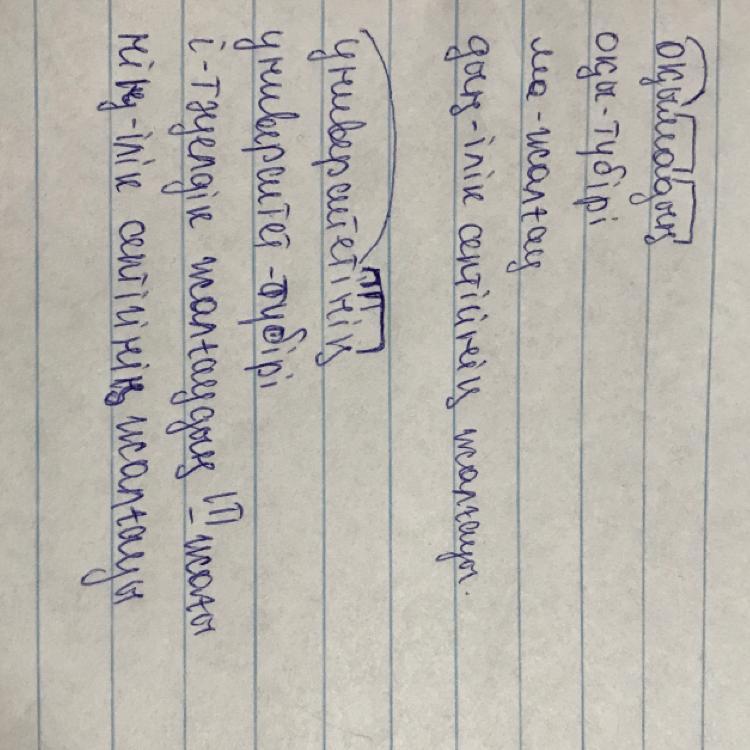 оқымадың
оқы-түбірі
ма-жалғау
дың-ілік септігінің жалғауы.
университетінің
университет-түбірі
і-тәуелдік жалғаудың III - жағы
нің-ілік септігінің жалғауы